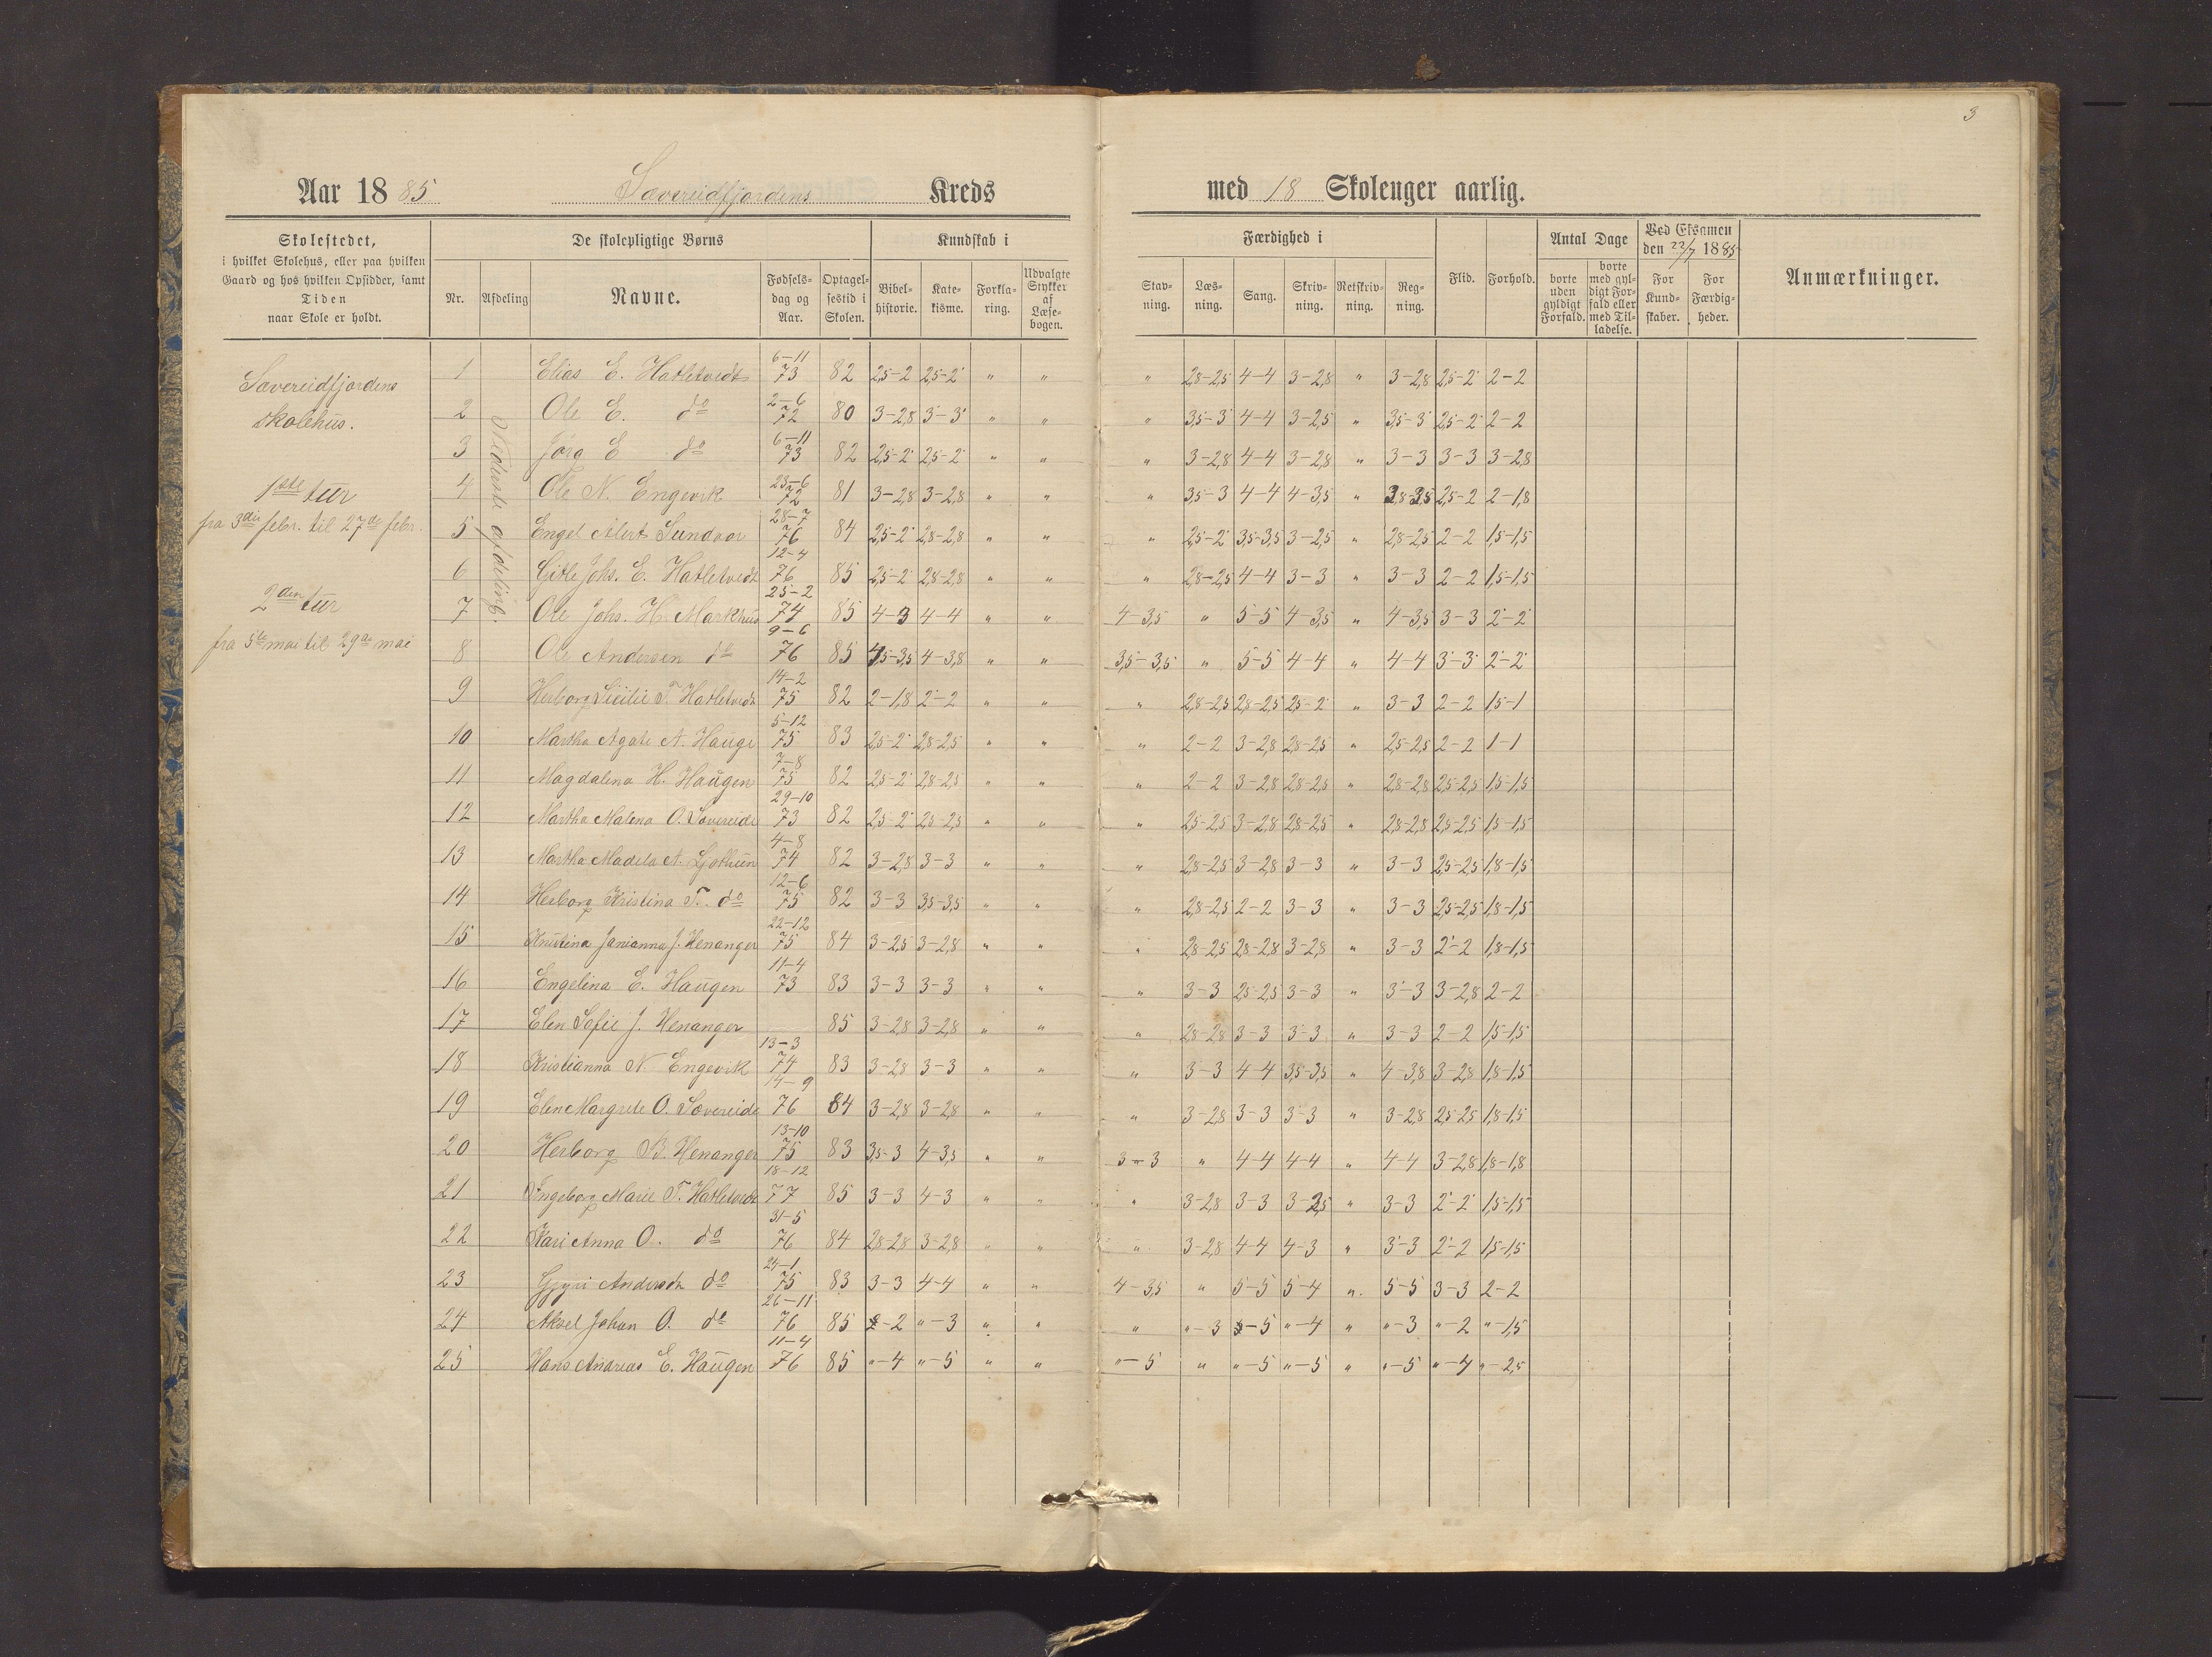 3
Aar 1885 Sævereidfjordens Kreds med 18 Skolenger aarlig.
Skolestedet, i hvilket Skolehus, eller paa hvilken Gaard og hos hvilken Opsidder, samt Tiden naar Skole er holdt.
De skolepligtige Børns
Nr. Afdeling Navne. Fødselsdag og Aar. Optagelsestid i Skolen.
Kundskab i
Bibelhistorie. Katekisme. Forklaring. Udvalgte Stykker af Læsebogen.
Færdighed i
Stavning. Læsning. Sang. Skrivning. Retskrivning. Regning.
Flid. Forhold.
Antal Dage
borte uden gyldigt Forfald. borte med gyldigt Forfald eller med Tilladelse.
Ved Eksamen den 22/7 1885
For Kundskaber. For Færdigheder.
Anmærkninger.
Sævereidfjordens
skolehus.
1ste tur
fra 3die febr. til 27de febr.
2den tur
fra 5te mai til 29de mai
Nederste afdeling.
1 Elias E. Hatletvedt 6-11 73 82 2,5-2 2,5-2 " " " 2,8-2,5 4-4 3-2,8 " 3-2,8 2,5-2 2-2
2 Ole E. do 2-6 72 80 3-2,8 3-3 " " " 3,5-3 4-4 3-2,5 " 3,5-3 2,5-2 2-2
3 Jørg E do 6-11 73 82 2,5-2 2,5-2 " " " 3-2,8 4-4 3-2,8 " 3-3 3-3 3-2,8
4 Ole N. Engevik 25-6 72 81 3-2,8 3-2,8 " " " 3,5-3 4-4 4-3,5 " 3,8-3,5 2,5-2 2-1,8
5 Engel Alert Sundvor 28-7 76 84 2,5-2 2,8-2,8 " " " 2,5-2 3,5-3,5 3-2,5 " 2,8-2,5 2-2 1,5-1,5
6 Gitle Johs. E. Hatletvedt 12-4 76 85 2,5-2 2,8-2,8 " " " 2,8-2,5 4-4 3-3 " 3-3 2-2 1,5-1,5
7 Ole Johs. H. Markhus 25-2 74 85 4-3 4-4 " " 4-3,5 " 5-5 4-3,5 " 4-3,5 3-3 2-2
8 Ole Andersen do 9-6 76 85 4,5-3,5 4-3,8 " " 3,5-3,5 " 5-5 4-4 " 4-4 3-3 2-2
9 Herborg Sicilie T. Hatletvedt 14-2 75 82 2-1,8 2-2 " " " 2,8-2,5 2,8-2,5 2,5-2 " 3-3 2-2 1,5-1
10 Martha Agate A. Hauge 5-12 75 83 2,5-2 2,8-2,5 " " " 2-2 3-2,8 2,8-2,5 " 2,5-2,5 2-2 1-1
11 Magdalena H. Haugen 7-8 75 82 2,5-2 2,8-2,5 " " " 2-2 3-2,8 2,8-2,5 " 2,8-2,8 2,5-2,5 1,5-1,5
12 Martha Malena O. Sævereide 29-10 73 82 2,5-2 2,5-2,5 " " " 2,5-2,5 3-2,8 2,8-2,5 " 2,8-2,8 2,5-2,5 1,5-1,5
13 Martha Madela A. Gjøthun 4-8 74 82 3-2,8 3-3 " " " 2,8-2,5 3-2,8 3-3 " 3-3 2,5-2,5 1,8-1,5
14 Herborg Kristina T. do 12-6 75 82 3-3 3,5-3,5 " " " 2,8-2,5 2-2 3-3 " 3-3 2,5-2,5 1,8-1,5
15 Knutina Janianna J. Henanger 22-12 75 84 3-2,5 3-2,8 " " " 2,8-2,5 2,8-2,8 3-2,8 " 3-3 2-2 1,8-1,5
16 Engelina E. Haugen 11-4 73 83 3-3 3-3 " " " 3-3 2,5-2,5 3-3 " 3-3 3-2,8 2-2
17 Elen Sofie J. Henanger 85 3-2,8 3-2,8 " " " 2,8-2,8 3-3 3-3 " 3-3 2-2 1,5-1,5
18 Kristianna N. Engevik 13-3 74 83 3-2,8 3-3 " " " 3-3 4-4 3,5-3,5 " 4-3,8 3-2,8 1,8-1,5
19 Elen Margrete O. Sævereide 14-9 76 84 3-2,8 3-2,8 " " " 3-2,8 3-3 3-3 " 3-2,8 2,5-2,5 1,8-1,5
20 Herborg B. Henanger 13-10 75 83 3,5-3 4-3,5 " " 3-3 " 4-4 4-4 " 4-4 3-2,8 1,8-1,8
21 Ingeborg Marie T. Hatletvedt 18-12 77 85 3-3 4-3 " " " 3-2,8 3-3 3-2,5 " 3-3 2-2 1,5-1,5
22 Kari Anna O. do 31-5 76 84 2,8-2,8 3-2,8 " " " 3-2,8 4-4 4-3 " 3-3 2-2 1,5-1,5
23 Gjyri do 24-1 75 83 3-3 4-4 " " 4-3,5 " 5-5 5-4 " 5-5 3-3 2-2
24 Aksel Johan O. do 26-11 76 85 "-2 "-3 " " " "-3 "-5 "-4 " "-3 "-2 "-1,5
25 Hans Andreas E. Haugen 11-4 76 85 "-4 "-5 " " "-5 " "-5 "-5 " "-5 "-4 "-2,5